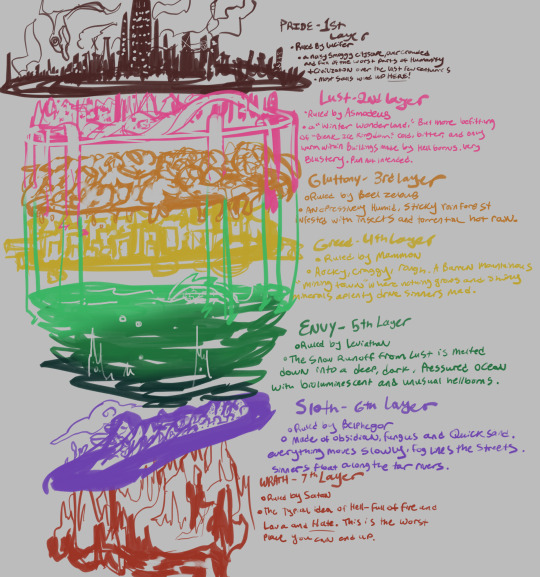 PRIDE - 1st
Layer
• Ruled By Lucifer
• a nasty smoggy cityscape, overcrowded
and full of the worst parts of humanity
+ civilization over the last few centuries
• Most souls wind up HERE!
Lust - 2nd Layer
• Ruled by Asmodeus
• a "winter wonderland," But more befitting
as "Bleak Ice Kingdom." Cold, bitter, and only
warm within Buildings made by hellborns. Very
Blustery. Pun not intended.
Gluttony - 3rd Layer
• Ruled by Beelzebub
• An oppressively Humid, Sticky rainforest
infested with insects and torrential hot rain.
Greed - 4th Layer
• Ruled by Mammon
• Rocky, craggy, rough. A Barren Mountainous
"mining town" where nothing grows and
drive sinners mad.
Envy - 5th Layer
• Ruled by Leviathan
• The Snow Runoff from Lust is melted
down into a deep, dark, Pressured ocean
with bioluminescent and unusual hellborns.
Sloth - 6th Layer
• Ruled by Belphegor
• Made of obsidian, fungus and Quicksand.
everything moves slowly. Fog lines the streets.
sinners float along the tar rivers.
WRATH - 7th Layer
• Ruled by Satan
• The Typical idea of Hell - Full of fire and
Lava and Hate. This is the worst
Place you can end up.